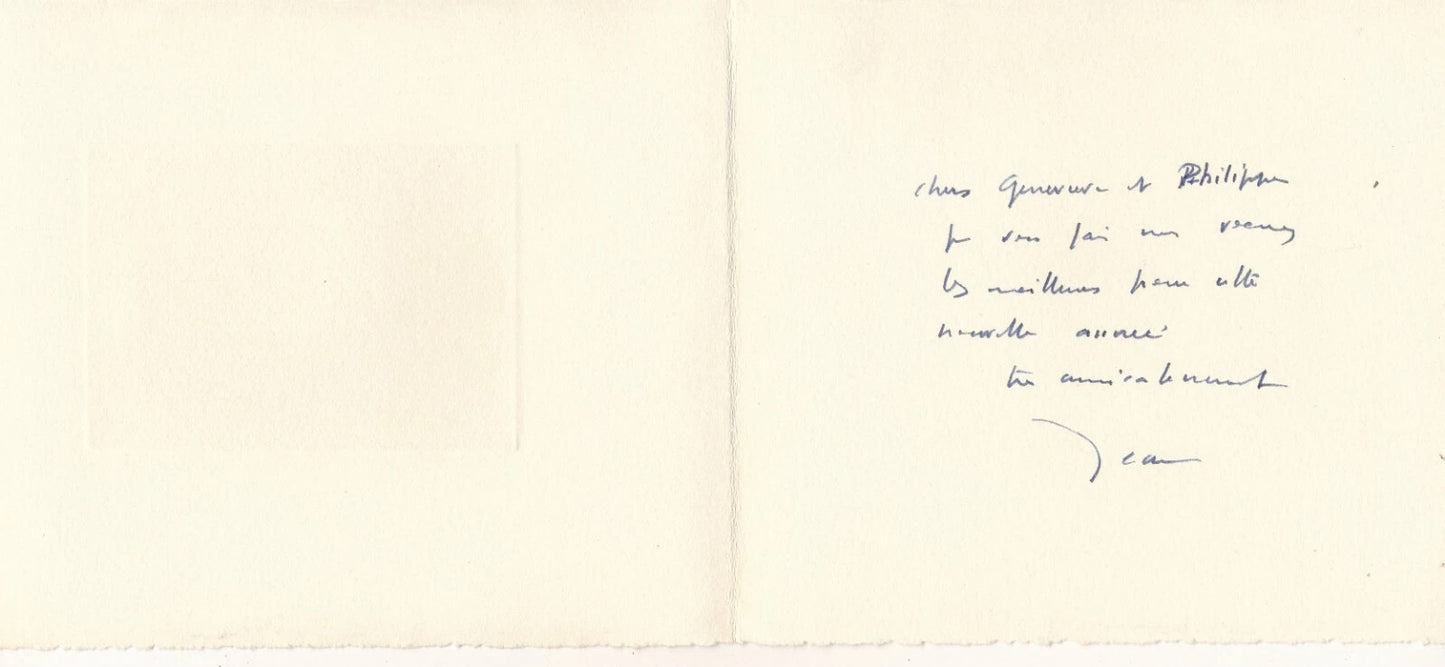 chers Geneviève et Philippe
je vous fais mes voeux
les meilleurs pour cette
nouvelle année
très amicalement
Jean